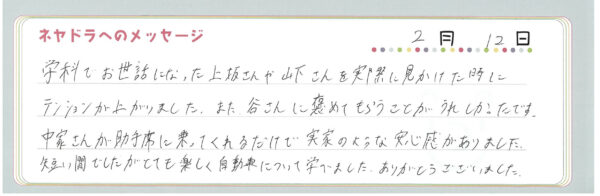 ネヤドラへのメッセージ
2月12日
学科でお世話になった上坂さんや山下さんを実際に見かけた時に
テンションが上がりました。また、谷さんに褒めてもらうことがうれしかったです。
中家さんが助手席に乗ってくれるだけで実家のような安心感がありました。
短い間でしたがとても楽しく自動車について学べました。ありがとうございました。